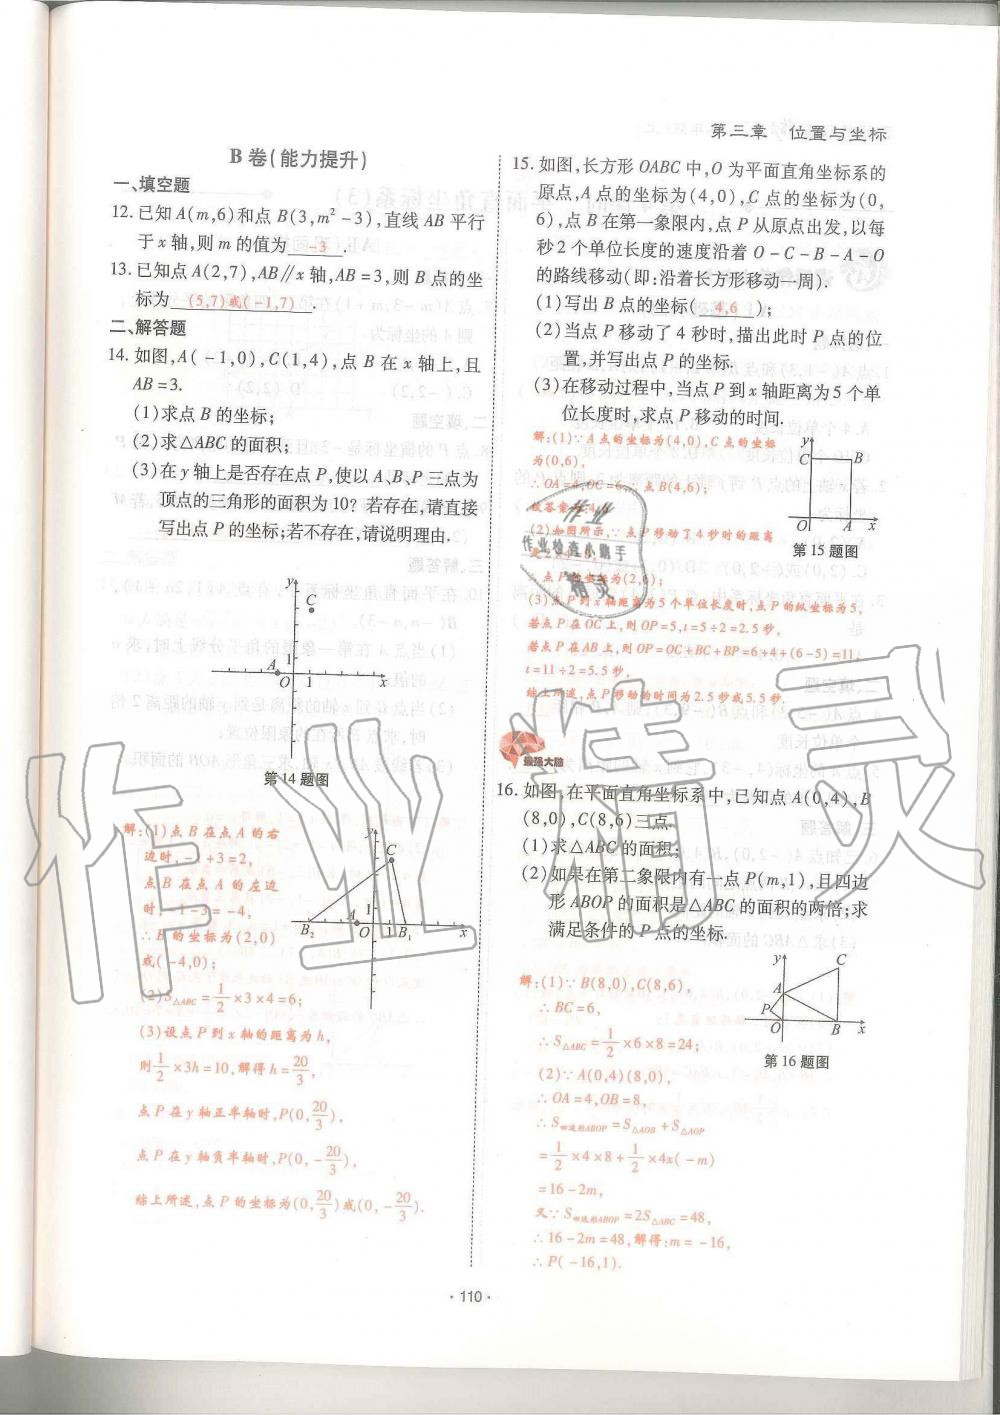 第三章 位置与坐标
B卷(能力提升)
一、填空题
12. 已知A(m,6)和点B(3,m²-3),直线AB平行
于x轴,则m的值为 -3 .
13. 已知点A(2,7),AB∥x轴,AB=3,则B点的坐
标为 (5,7)或(-1,7) .
二、解答题
14. 如图,A(-1,0),C(1,4),点B在x轴上,且
AB=3.
(1)求点B的坐标;
(2)求△ABC的面积;
(3)在y轴上是否存在点P,使以A、B、P三点为
顶点的三角形的面积为10?若存在,请直接
写出点P的坐标;若不存在,请说明理由.
y
C
1
A
O 1 x
第14题图
解:(1)点B在点A的右
边时,-1+3=2,
点B在点A的左边
时,-1-3=-4,
∴B的坐标为(2,0)
或(-4,0);
(2)S△ABC=1/2×3×4=6;
(3)设点P到x轴的距离为h,
则1/2×3h=10,解得h=20/3,
点P在y轴正半轴时,P(0,20/3),
点P在y轴负半轴时,P(0,-20/3),
综上所述,点P的坐标为(0,20/3)或(0,-20/3).
y
C
1
A
B₂ O 1 B₁ x
15. 如图,长方形OABC中,O为平面直角坐标系的
原点,A点的坐标为(4,0),C点的坐标为(0,
6),点B在第一象限内,点P从原点出发,以每
秒2个单位长度的速度沿着O-C-B-A-O
的路线移动(即:沿着长方形移动一周).
(1)写出B点的坐标( 4,6 );
(2)当点P移动了4秒时,描出此时P点的位
置,并写出点P的坐标.
(3)在移动过程中,当点P到x轴距离为5个单
位长度时,求点P移动的时间.
解:(1)∵A点的坐标为(4,0),C点的坐标
为(0,6),
∴OA=4,OC=6,∴点B(4,6);
故答案为:4,6
(2)如图所示,∵点P移动了4秒时的距离
是2×4=8,
∴点P的坐标为(2,6);
(3)点P到x轴距离为5个单位长度时,点P的纵坐标为5,
若点P在OC上,则OP=5,t=5÷2=2.5秒,
若点P在AB上,则OP=OC+BC+BP=6+4+(6-5)=11,
t=11÷2=5.5秒,
综上所述,点P移动的时间为2.5秒或5.5秒.
y
C B
O A x
第15题图
作业
作业检查小助手
精灵
最强大脑
16. 如图,在平面直角坐标系中,已知点A(0,4),B
(8,0),C(8,6)三点.
(1)求△ABC的面积;
(2)如果在第二象限内有一点P(m,1),且四边
形ABOP的面积是△ABC的面积的两倍;求
满足条件的P点的坐标.
解:(1)∵B(8,0),C(8,6),
∴BC=6,
∴S△ABC=1/2×6×8=24;
(2)∵A(0,4)(8,0),
∴OA=4,OB=8,
∴S四边形ABOP=S△AOB+S△AOP
=1/2×4×8+1/2×4×(-m)
=16-2m,
又∵S四边形ABOP=2S△ABC=48,
∴16-2m=48,解得:m=-16,
∴P(-16,1).
y
C
A
P
O B x
第16题图
作业精灵
·110·